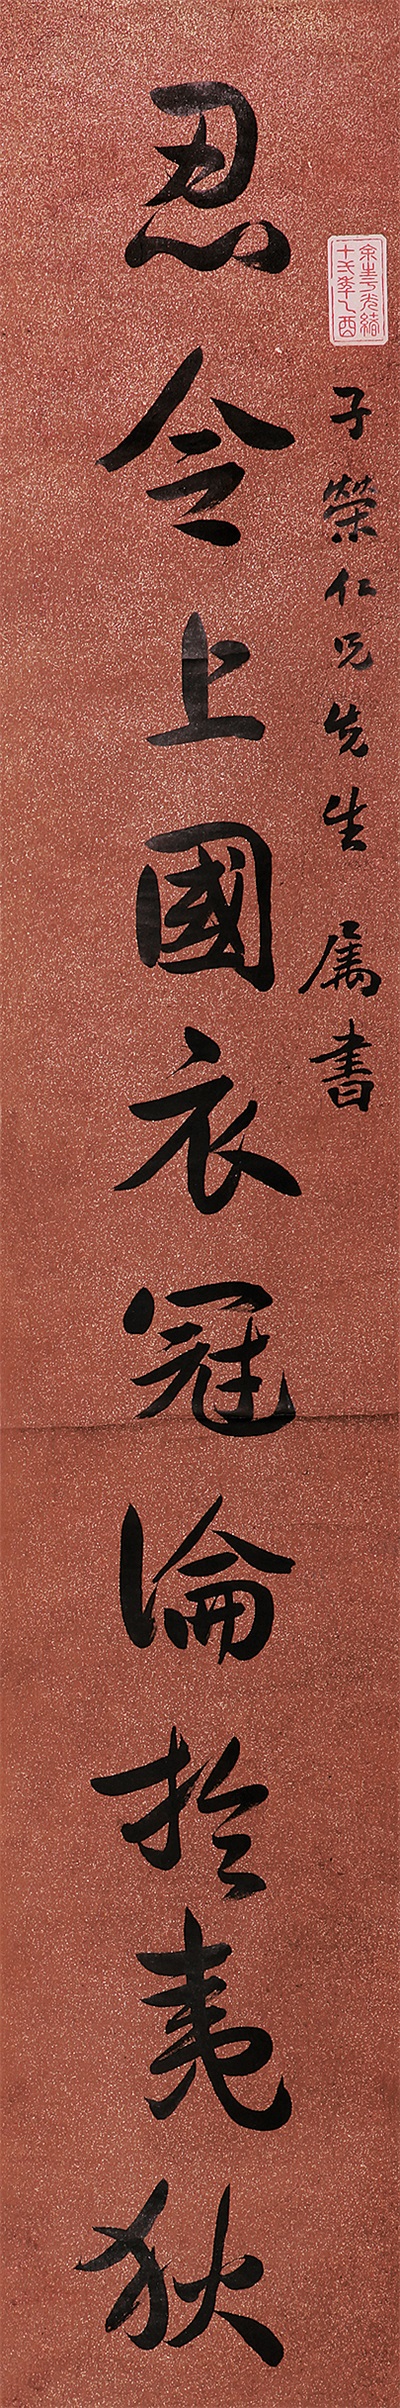 余生于光緒
十弌年乙酉
子榮仁兄先生 属書
忍令上國衣冠淪於夷狄